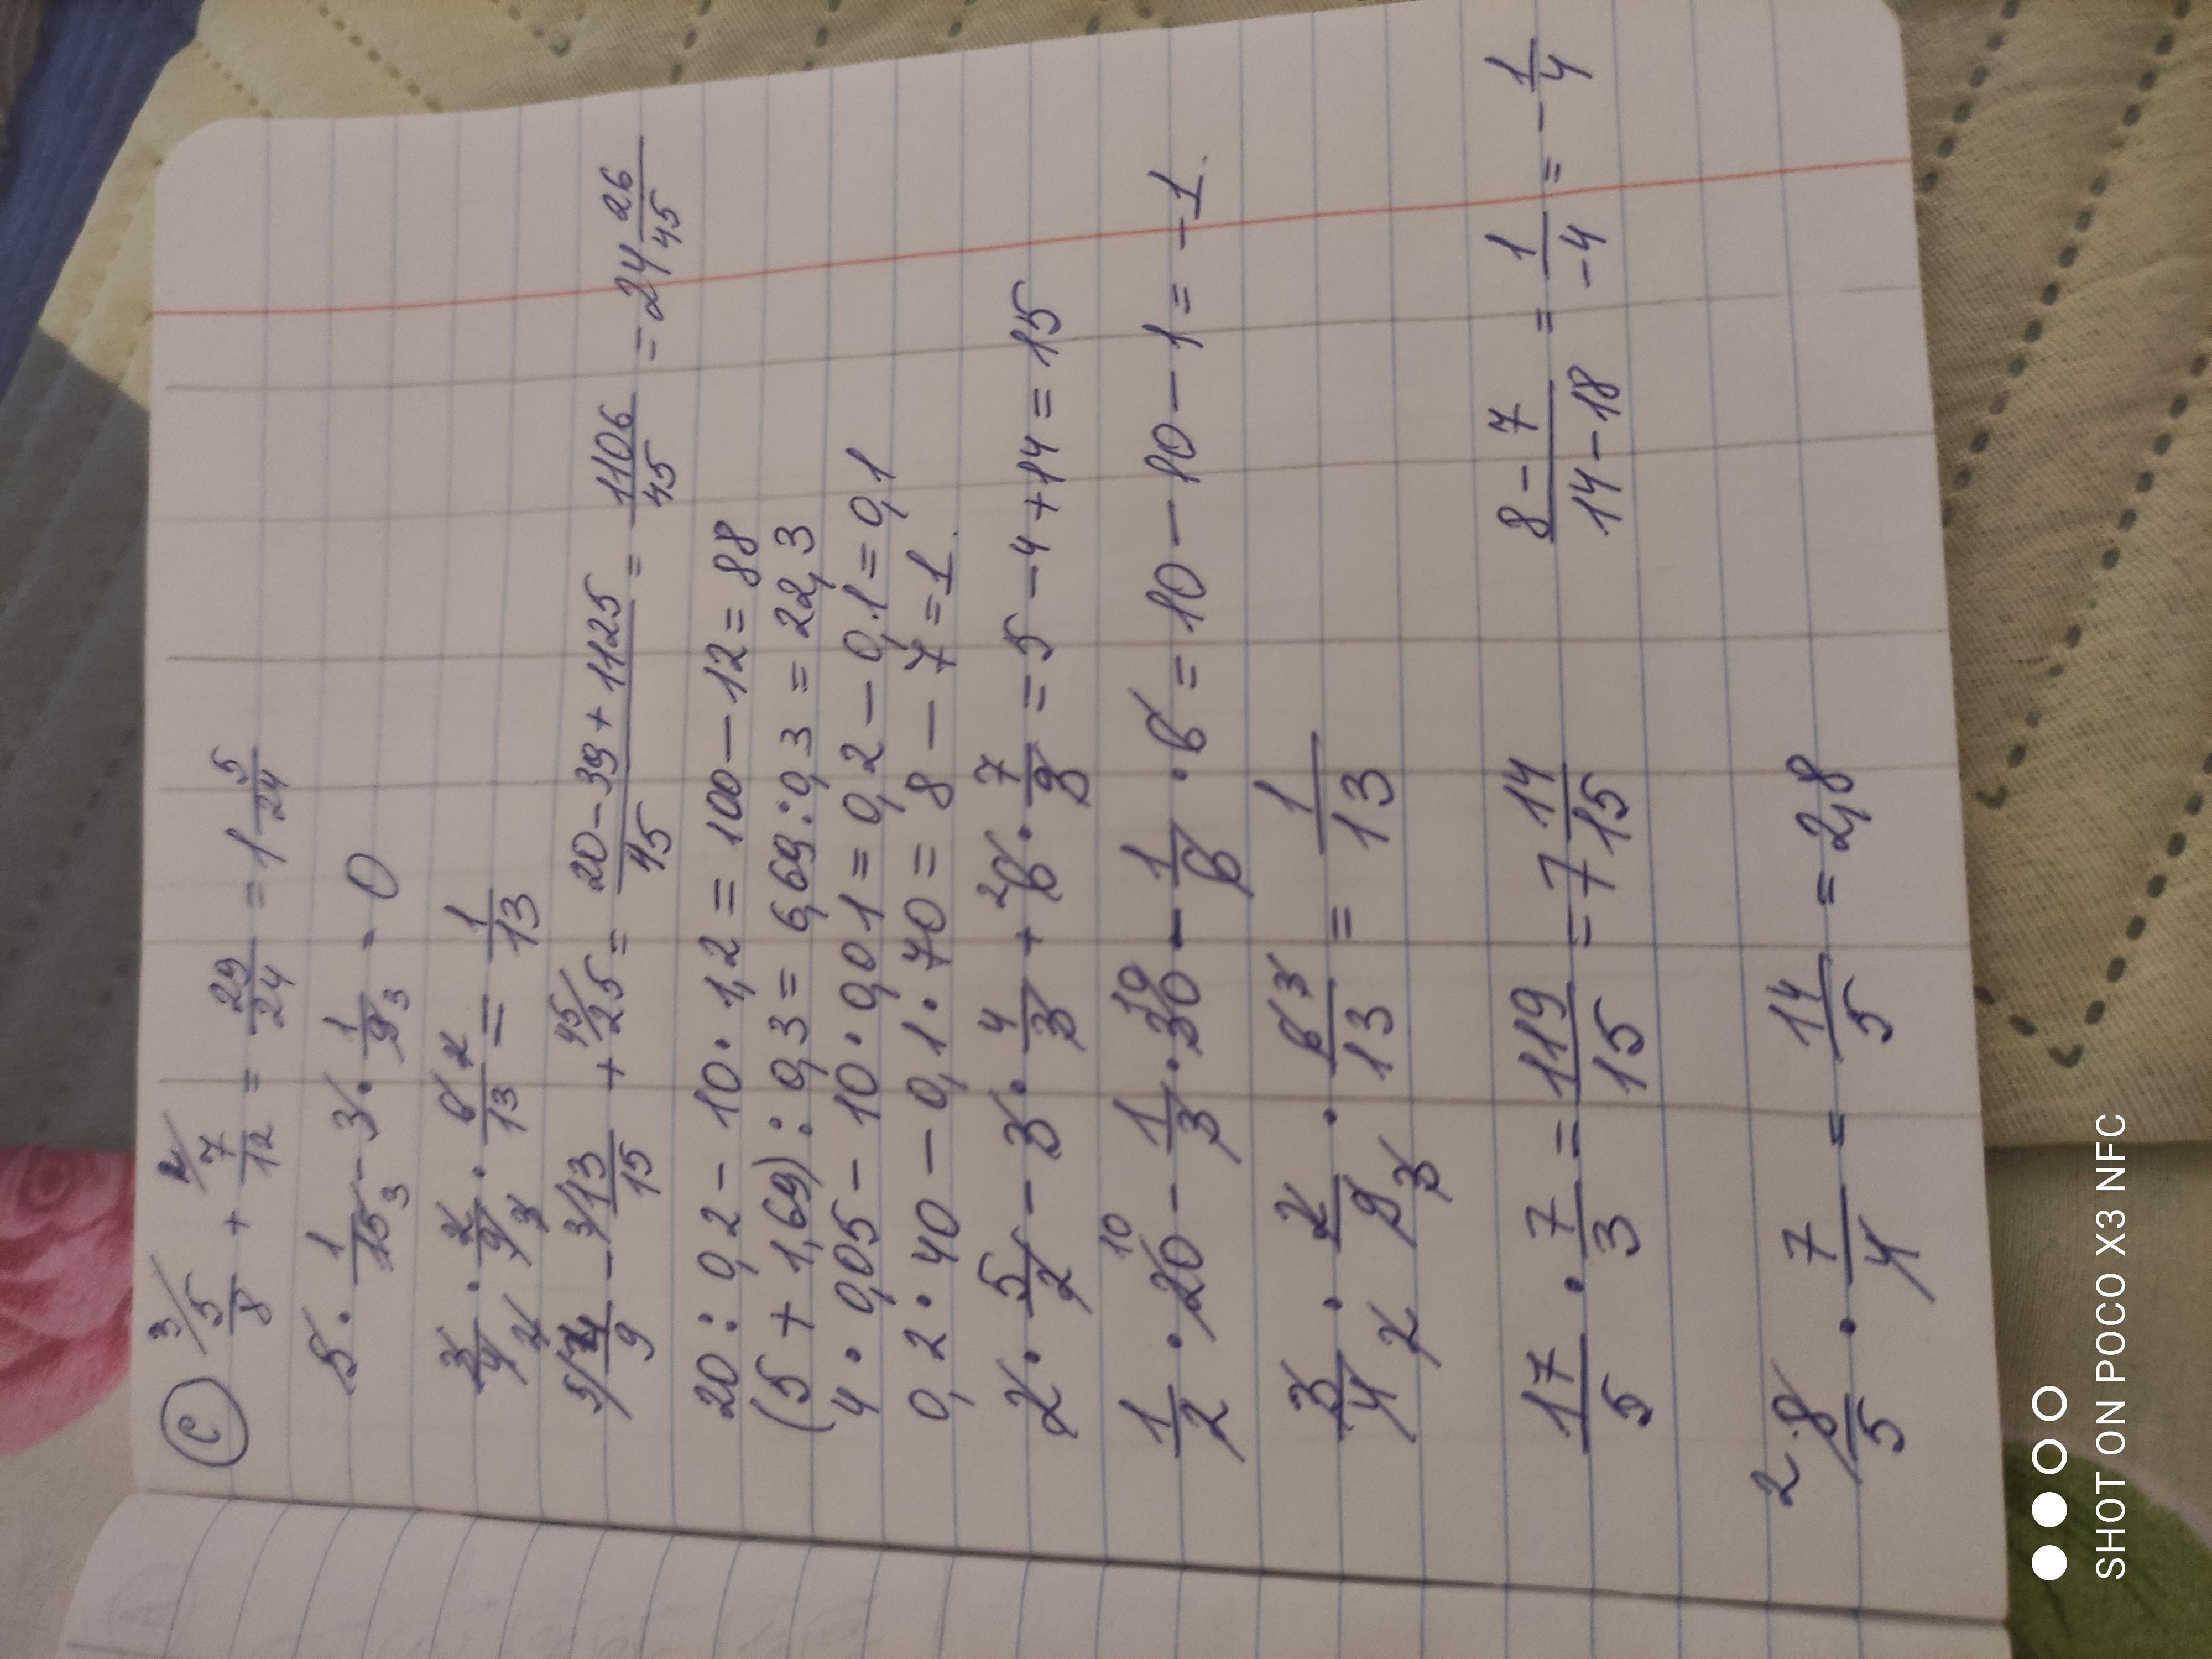 (c) 3/ 5/8 + 2/ 7/12 = 29/24 = 1 5/24
5 · 1/15 3 - 3 · 1/9 3 = 0
3/4 2 · 2/9 3 · 6 2/13 = 1/13
5/ 4/9 - 3/ 13/15 + 45/ 25 = (20-39+1125)/45 = 1106/45 = 24 26/45
20 : 0,2 - 10 · 1,2 = 100 - 12 = 88
(5 + 1,69) : 0,3 = 6,69 : 0,3 = 22,3
4 · 0,05 - 10 · 0,01 = 0,2 - 0,1 = 0,1
0,2 · 40 - 0,1 · 70 = 8 - 7 = 1.
2 · 5/2 - 3 · 4/3 + 2 6 · 7/3 = 5 - 4 + 14 = 15
1/2 · 20 10 - 1/3 · 30 10 - 1/6 · 6 = 10 - 10 - 1 = -1.
3/4 2 · 2/9 3 · 6 3/13 = 1/13
17/5 · 7/3 = 119/15 = 7 14/15
(8-7)/(14-18) = 1/-4 = - 1/4
2 · 8/5 · 7/4 = 14/5 = 2,8
SHOT ON POCO X3 NFC